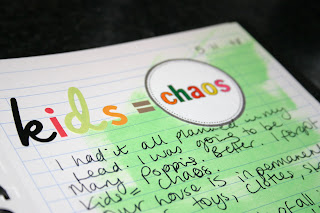 kids = chaos
I had it all planned in my
head. I was going to be
Mary Poppins. Better.
Kids = Chaos.
Our house is in permanent
toys, clothes,